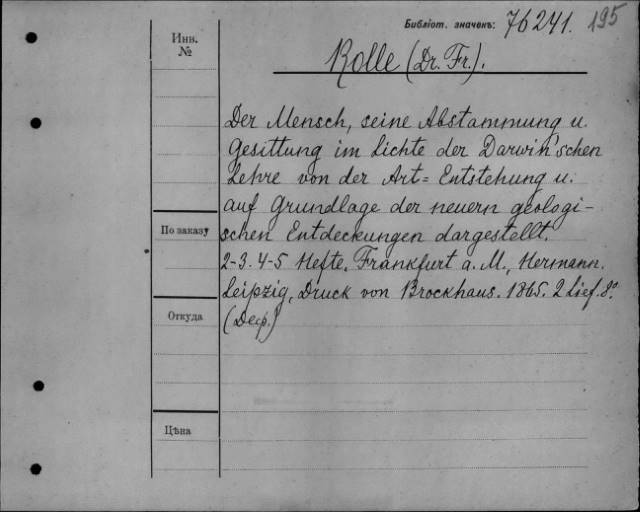 Библіот. значекъ: 76241. 195
Инв.
№
Rolle (Dr. Fr.).
Der Mensch, seine Abstammung u.
Gesittung im Lichte der Darwin'schen
Lehre von der Art= Entstehung u.
auf Grundlage der neuern geologi-
schen Entdeckungen dargestellt.
По заказу
2-3. 4-5 Hefte. Frankfurt a. M., Hermann.
Leipzig, Druck von Brockhaus. 1865. 2 Lief. 8º.
Откуда
(Деф.)
Цѣна